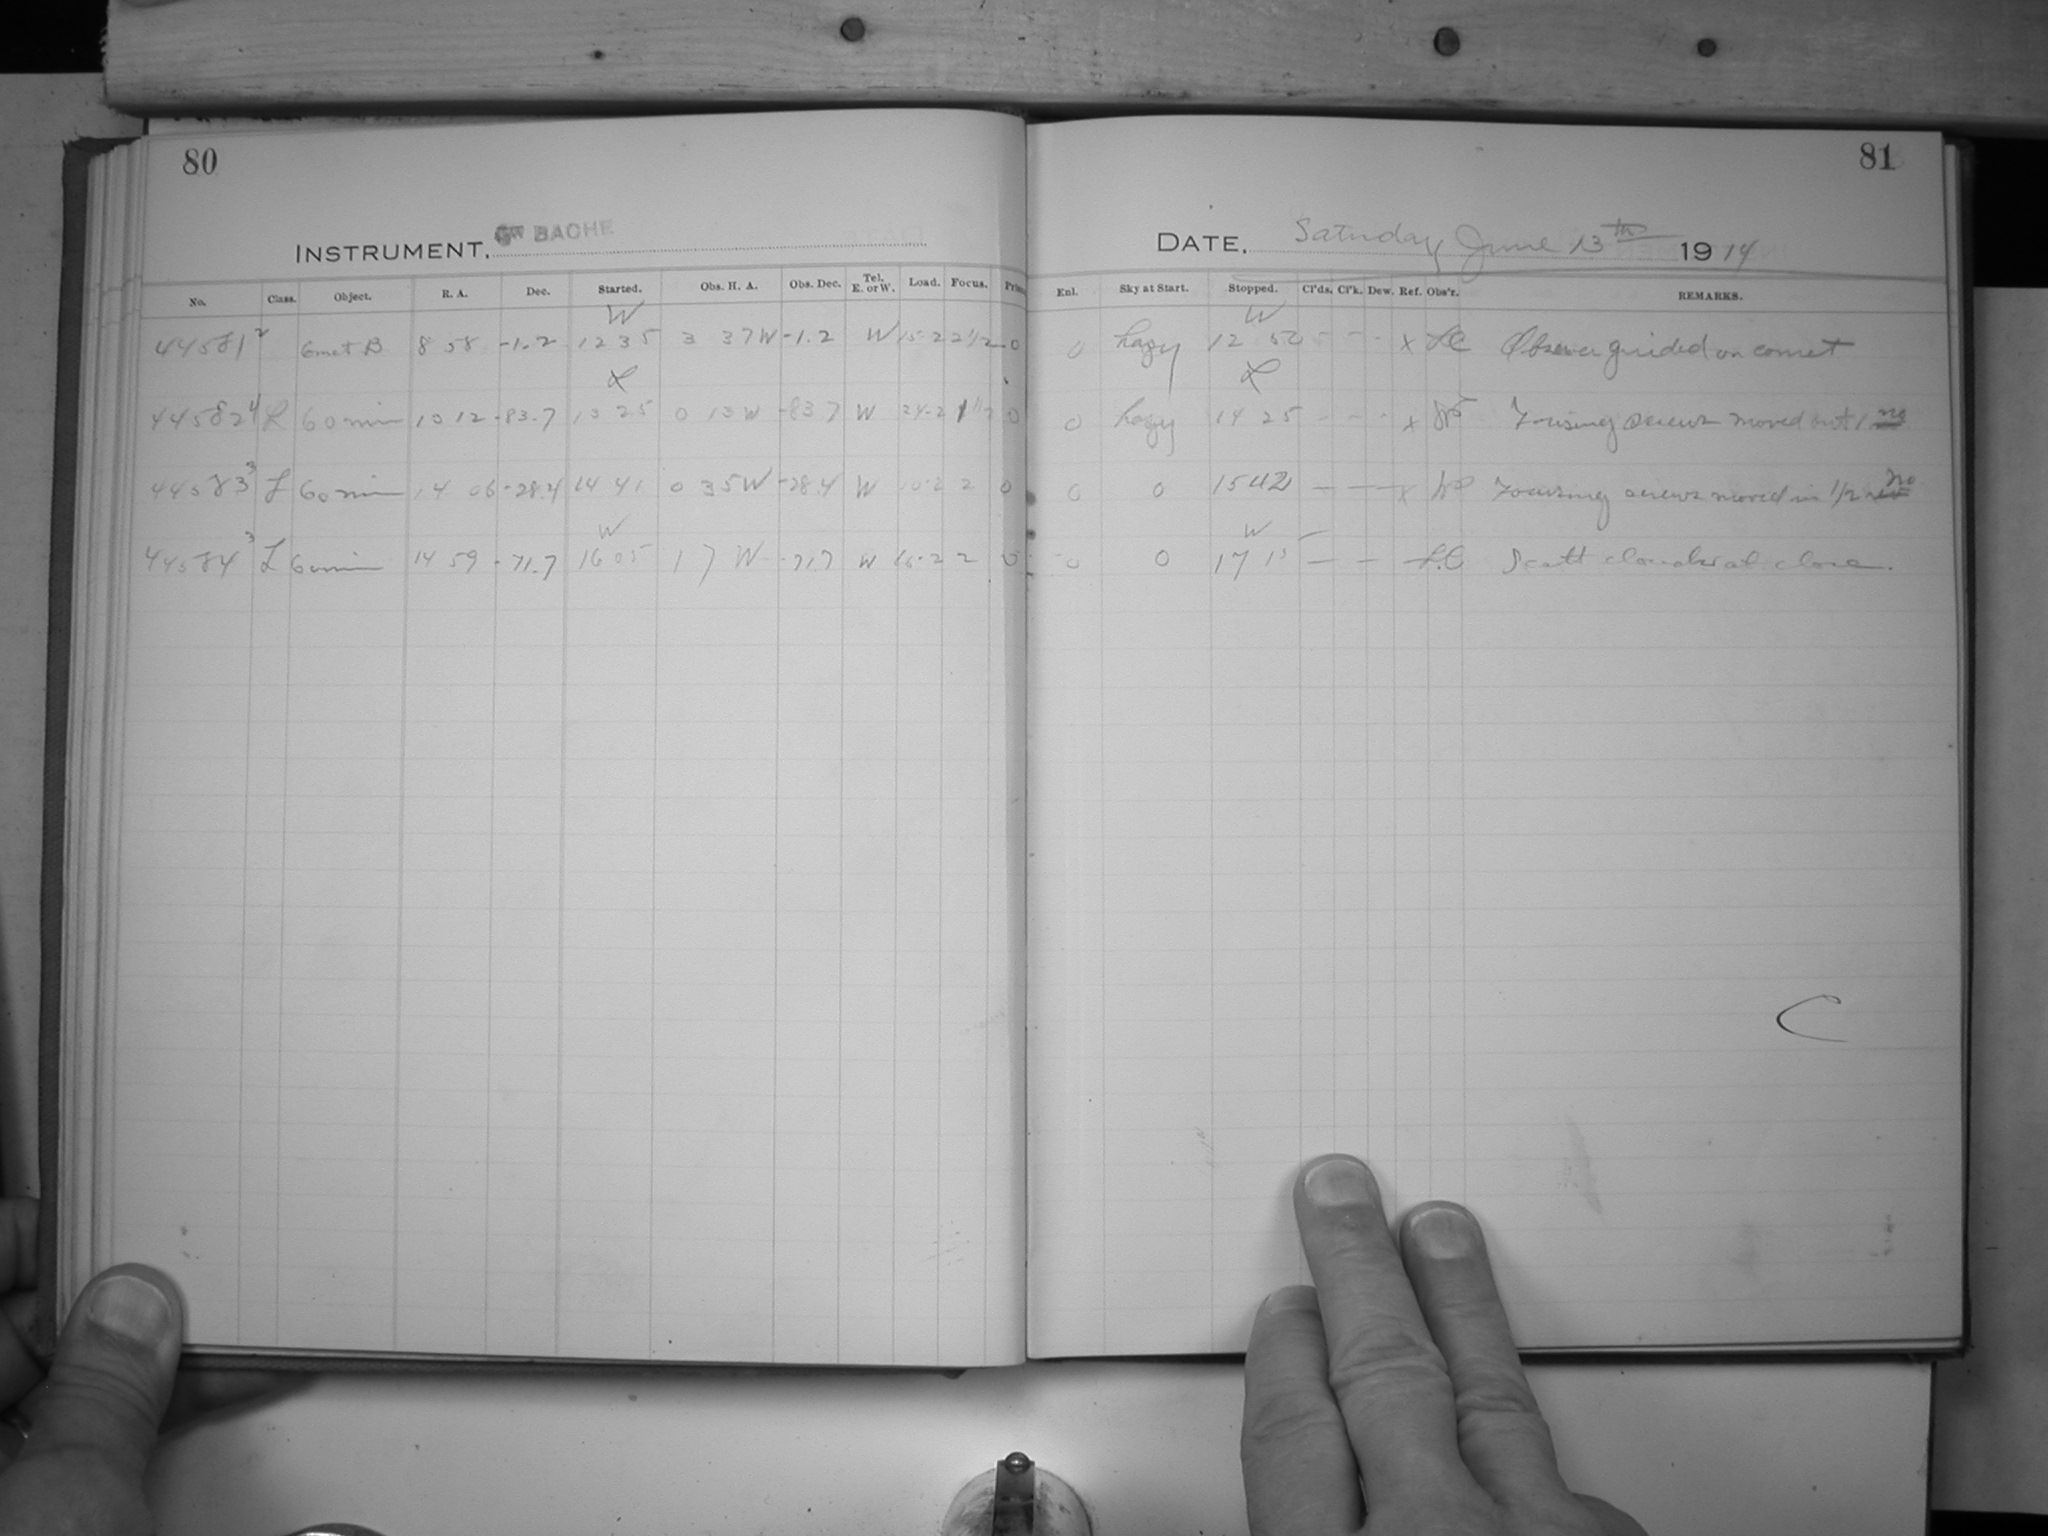 80
INSTRUMENT. BACHE
No. Class. Object. R. A. Dec. Started. Obs. H. A. Obs. Dec. Tel. E. or W. Load. Focus.
W
44581² Comet B 8 58 -1.2 12 35 3 37 W -1.2 W 15-2 2 1/2 0
L
44582⁴ L 60 min 10 12 -83.7 13 25 0 13 W -83.7 W 24-2 0
44583³ L 60 min 14 06 -28.4 14 41 0 35 W -28.4 W 2 0
W
44584³ L 60 min 14 59 -71.7 16 05 1 7 W -71.7 W 16-2 2 0
81
DATE. Saturday June 13th 1914
Enl. Sky at Start. Stopped. Cl'ds. Cl'k. Dew. Ref. Obs'r. REMARKS.
W
0 hazy 12 50 - - - x LC Observer guided on comet
L
0 hazy 14 25 - - - x Focusing screws moved out 1 no
0 0 15 42 — — — x Focusing screws moved in 1/2 no
W
0 0 17 15 — — LC Scatt clouds at close.
C